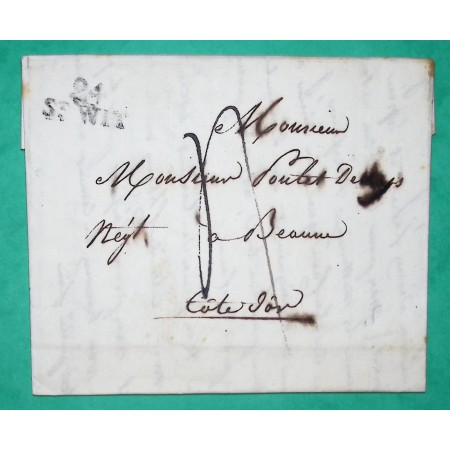 24
ST WIT
Monsieur
Monsieur Poulet Denuys
Négt à Beaune
Côte d'or